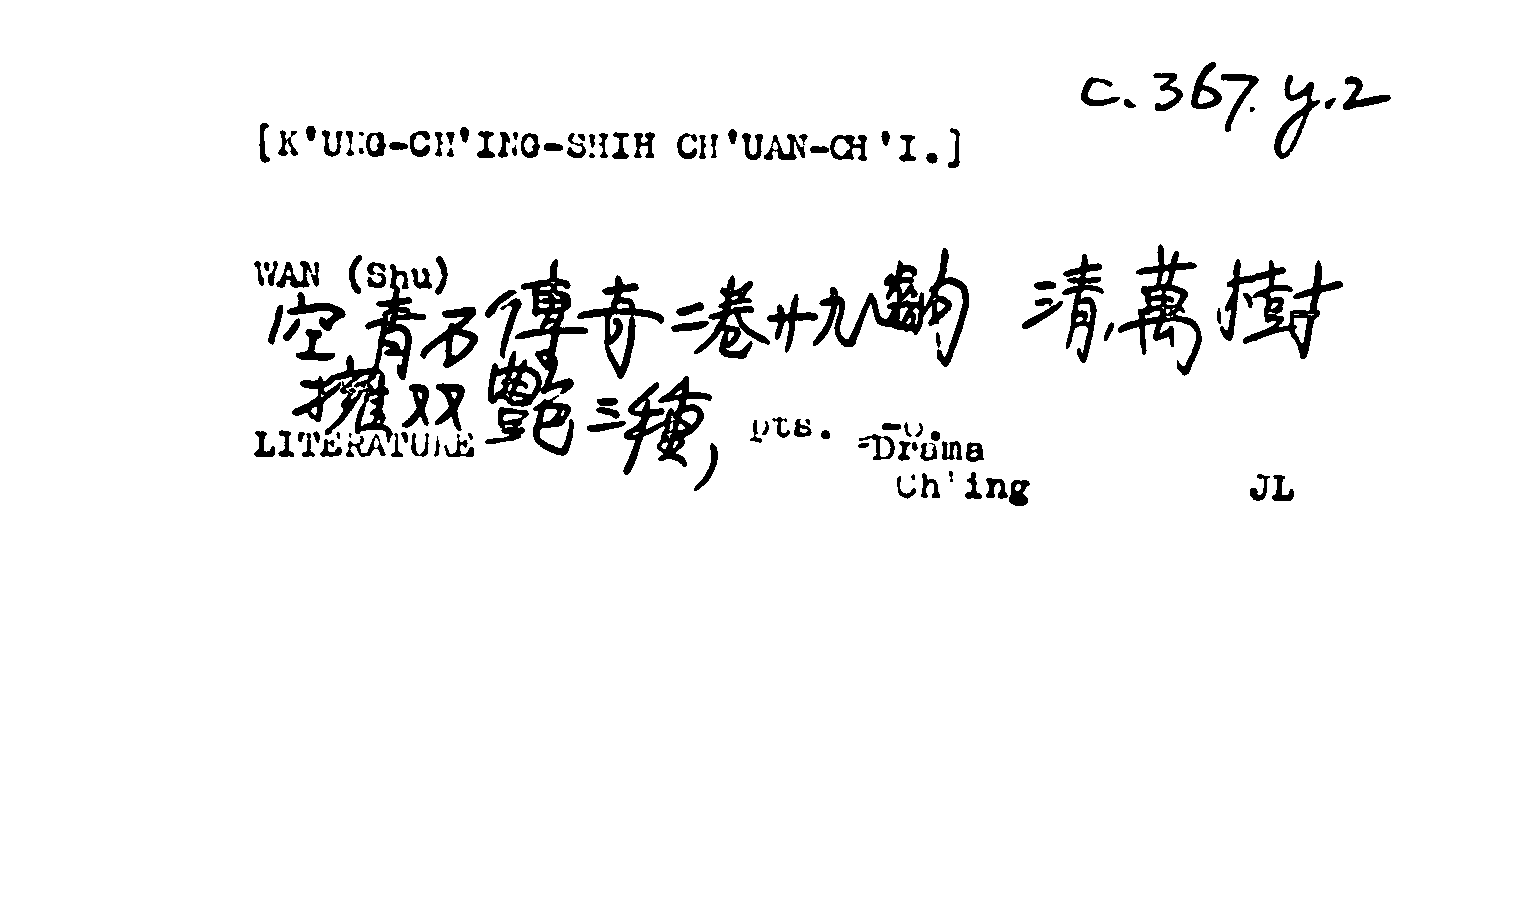 c.367.y.2
[K'UNG-CH'ING-SHIH CH'UAN-CH'I.]
WAN (Shu)
空青石傳奇二卷廿九齣 清,萬樹
擁双艷三種, pts.
LITERATURE =Drama
Ch'ing JL